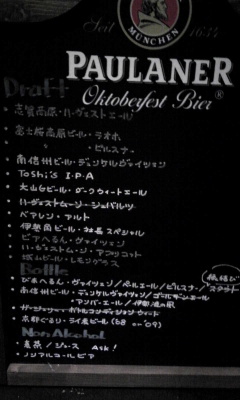 Seit 1634
MÜNCHEN
PAULANER
Oktoberfest Bier®
Draft
志賀高原・ハーヴェストエール
富士桜高原ビール・ラオホ
〃 ・ピルスナー
南信州ビール・デュンケルヴァイツェン
Toshi's I.P.A
大山Gビール・ダークウィートエール
ハーヴェストムーン・シュバルツ
ベアレン・アルト
伊勢角ビール・社長スペシャル
ビアへるん・ヴァイツェン
ハーヴェストムーン・アプリコット
城山ビール・レモングラス
Bottle
びあへるん・ヴァイツェン/ペールエール/ピルスナー/スタウト
(縁結び)
南信州ビール・デュンケルヴァイツェン/ゴールデンエール
・アンバーエール/伊那流の風
京都ぐるり・ライ麦ビール ('08 or '09)
Non Alcohol
麦茶/ジュース Ask!
ノンアルコールビア